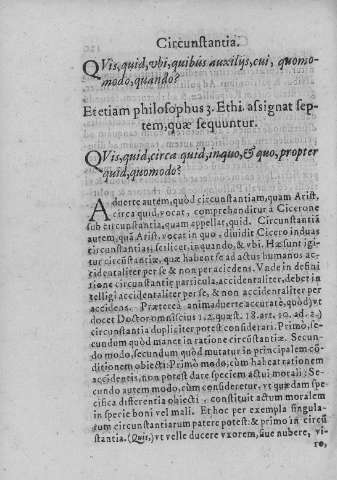 Circunstantia.
QVis, quid, vbi, quibus auxilijs, cui, quomo-
modo, quando?
Et etiam philosophus 3. Ethi. assignat sep-
tem, quæ sequuntur.
QVis, quid, circa quid, inquo, & quo, propter
quid, quomodo?
Aduerte autem, quòd circunstantiam, quam Arist.
circa quid, vocat, comprehenditur à Cicerone
sub circunstantia, quam appellat, quid. Circunstantiã
autem, quã Arist. vocat in quo, diuidit Cicero in duas
circunstantias: scilicet, in quando, & vbi. Hæ sunt igi-
tur circũstãtiæ, quæ habent se ad actus humanos ac-
cidentaliter per se & non per accidens. Vnde in defini
tione circunstantiæ particula, accidentaliter, debet in
telligi accidentaliter per se, & non accidentaliter per
accidens. Præterea animaduerte accuratè, quòd vt
docet Doctor omniscius 1.2. quæst. 18. art. 10. ad. 2.)
circunstantia dupliciter potest considerari. Primo, se-
cundum quòd manet in ratione circũstantiæ. Secun-
do modo, secundum quòd mutatur in principalem cõ-
ditionem obiecti: Primo modo, cùm habeat rationem
accidentis, non potest dare speciem actui morali: Se-
cundo autem modo, cùm consideretur, vt quædam spe
cifica differentia obiecti, constituit actum moralem
in specie boni vel mali. Et hoc per exempla singula-
rum circunstantiarum patere potest: & primo in circũ
stantia. (Quis,) vt velle ducere vxorem, siue nubere, vi-
ro,